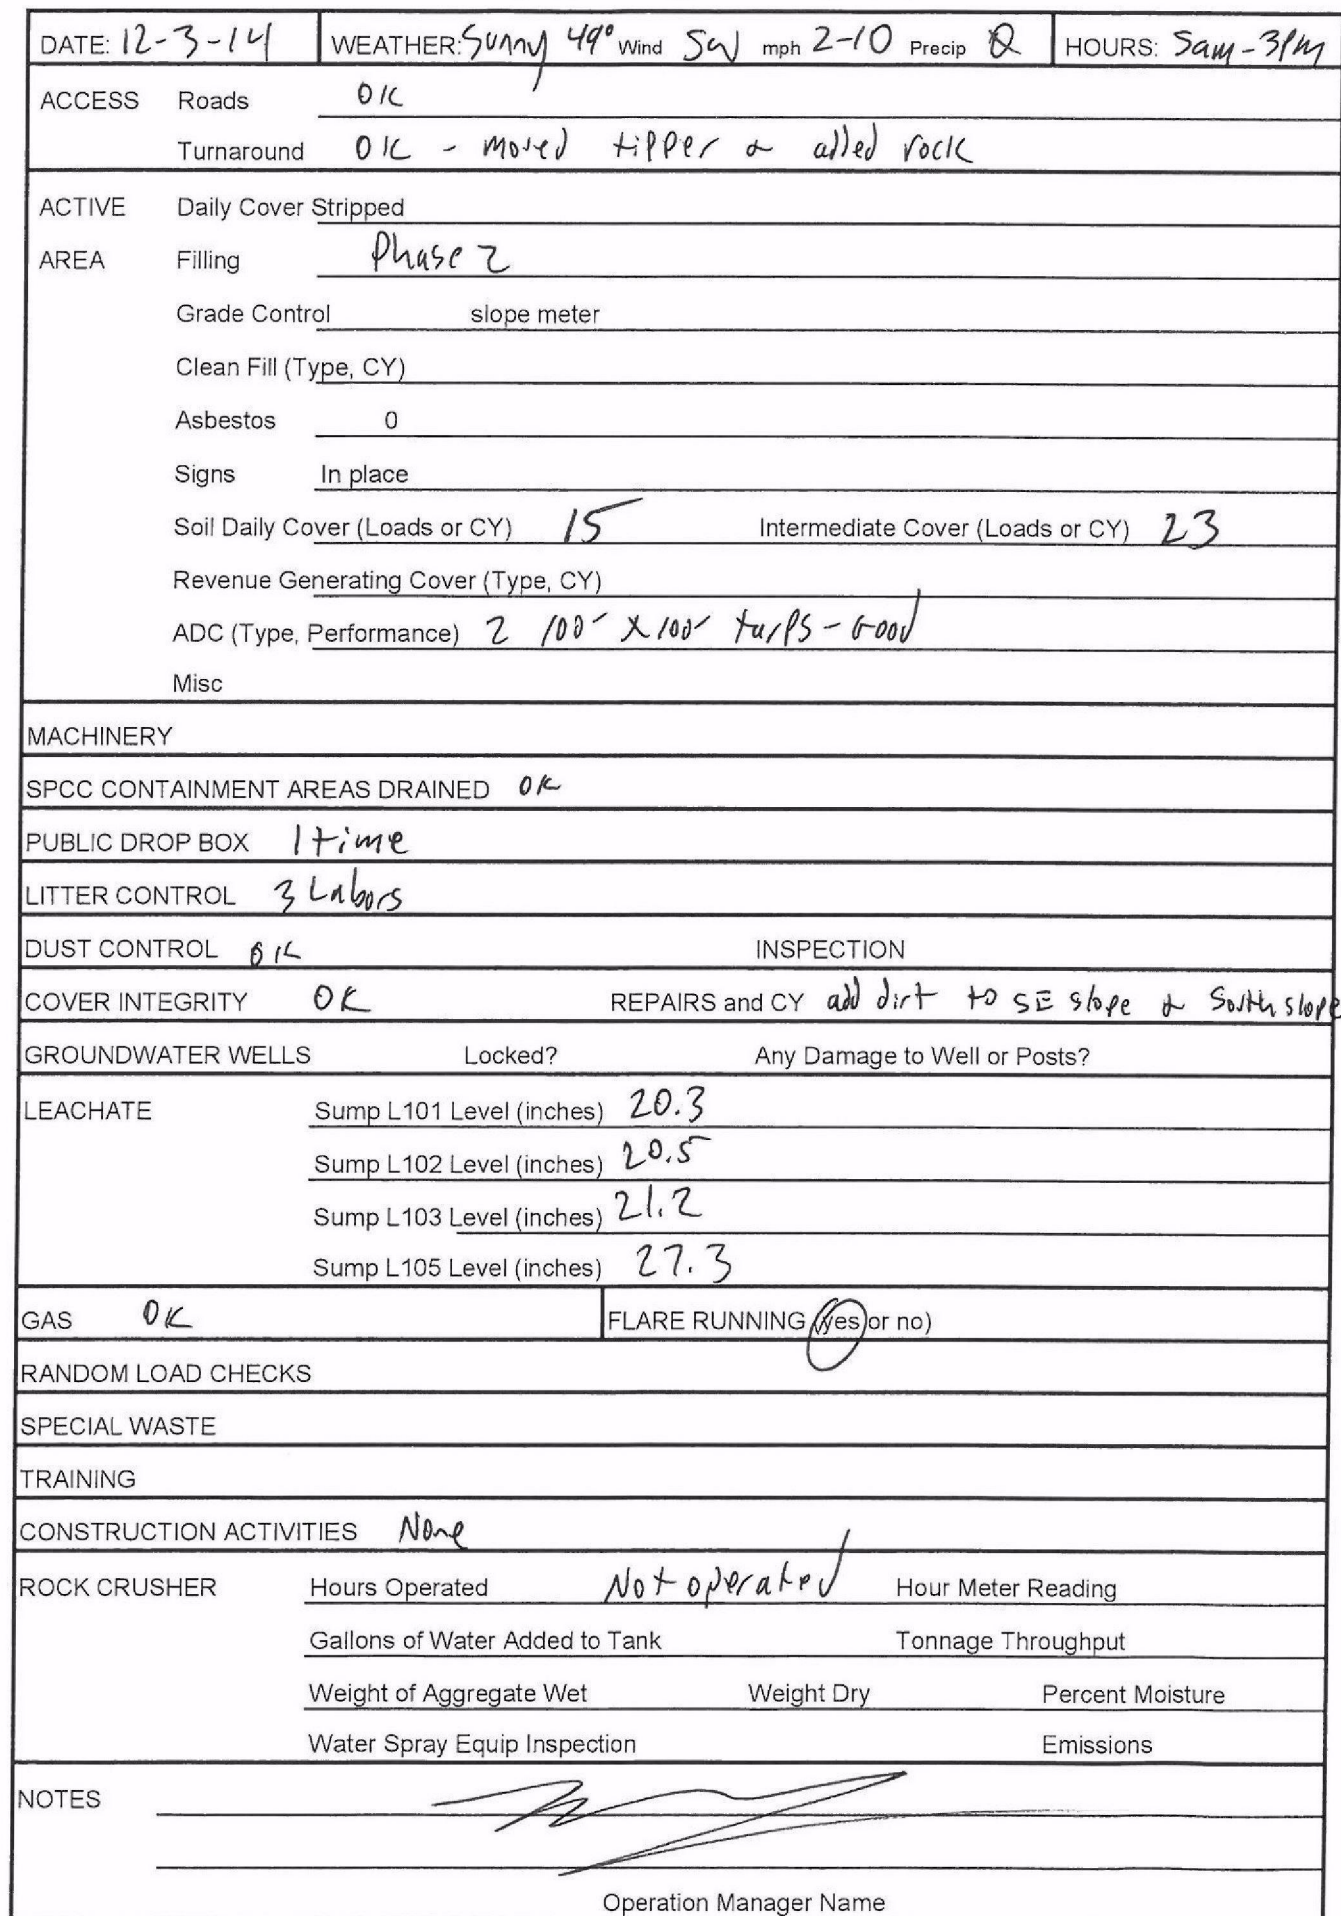 DATE: 12-3-14 WEATHER: Sunny 49° Wind SW mph 2-10 Precip 0 HOURS: 5am-3PM
ACCESS Roads OK
Turnaround OK - moved tipper & added rock
ACTIVE Daily Cover Stripped
AREA Filling Phase 2
Grade Control slope meter
Clean Fill (Type, CY)
Asbestos 0
Signs In place
Soil Daily Cover (Loads or CY) 15 Intermediate Cover (Loads or CY) 23
Revenue Generating Cover (Type, CY)
ADC (Type, Performance) 2 100' x 100' tarps - Good
Misc
MACHINERY
SPCC CONTAINMENT AREAS DRAINED OK
PUBLIC DROP BOX 1 time
LITTER CONTROL 3 Labors
DUST CONTROL OK INSPECTION
COVER INTEGRITY OK REPAIRS and CY add dirt to SE slope & South slope
GROUNDWATER WELLS Locked? Any Damage to Well or Posts?
LEACHATE Sump L101 Level (inches) 20.3
Sump L102 Level (inches) 20.5
Sump L103 Level (inches) 21.2
Sump L105 Level (inches) 27.3
GAS OK FLARE RUNNING (yes or no)
RANDOM LOAD CHECKS
SPECIAL WASTE
TRAINING
CONSTRUCTION ACTIVITIES None
ROCK CRUSHER Hours Operated Not operated Hour Meter Reading
Gallons of Water Added to Tank Tonnage Throughput
Weight of Aggregate Wet Weight Dry Percent Moisture
Water Spray Equip Inspection Emissions
NOTES
Operation Manager Name